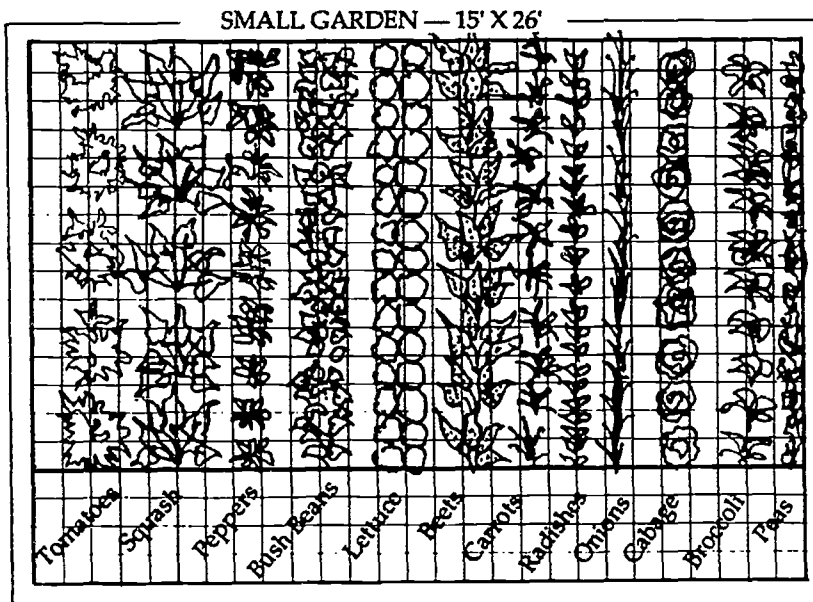 SMALL GARDEN — 15' X 26'
Tomatoes
Squash
Peppers
Bush Beans
Lettuce
Beets
Carrots
Radishes
Onions
Cabage
Broccoli
Peas